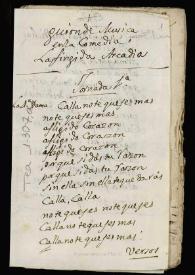 1
Guion de Musica
en la Comedia
La fingida Arcadia
Jornada 1ª
Dama Calla no te quejes mas
no te quejes mas
afligido Corazon
afligido Corazon
afligido Corazon
porque si das tu razon
porque si das tu razon
sin ella sin ella te quedarás
Calla, Calla
no te quejes no te quejes
Calla no te quejes mas
Calla no te quejes mas
Versos
Tea 1-307,